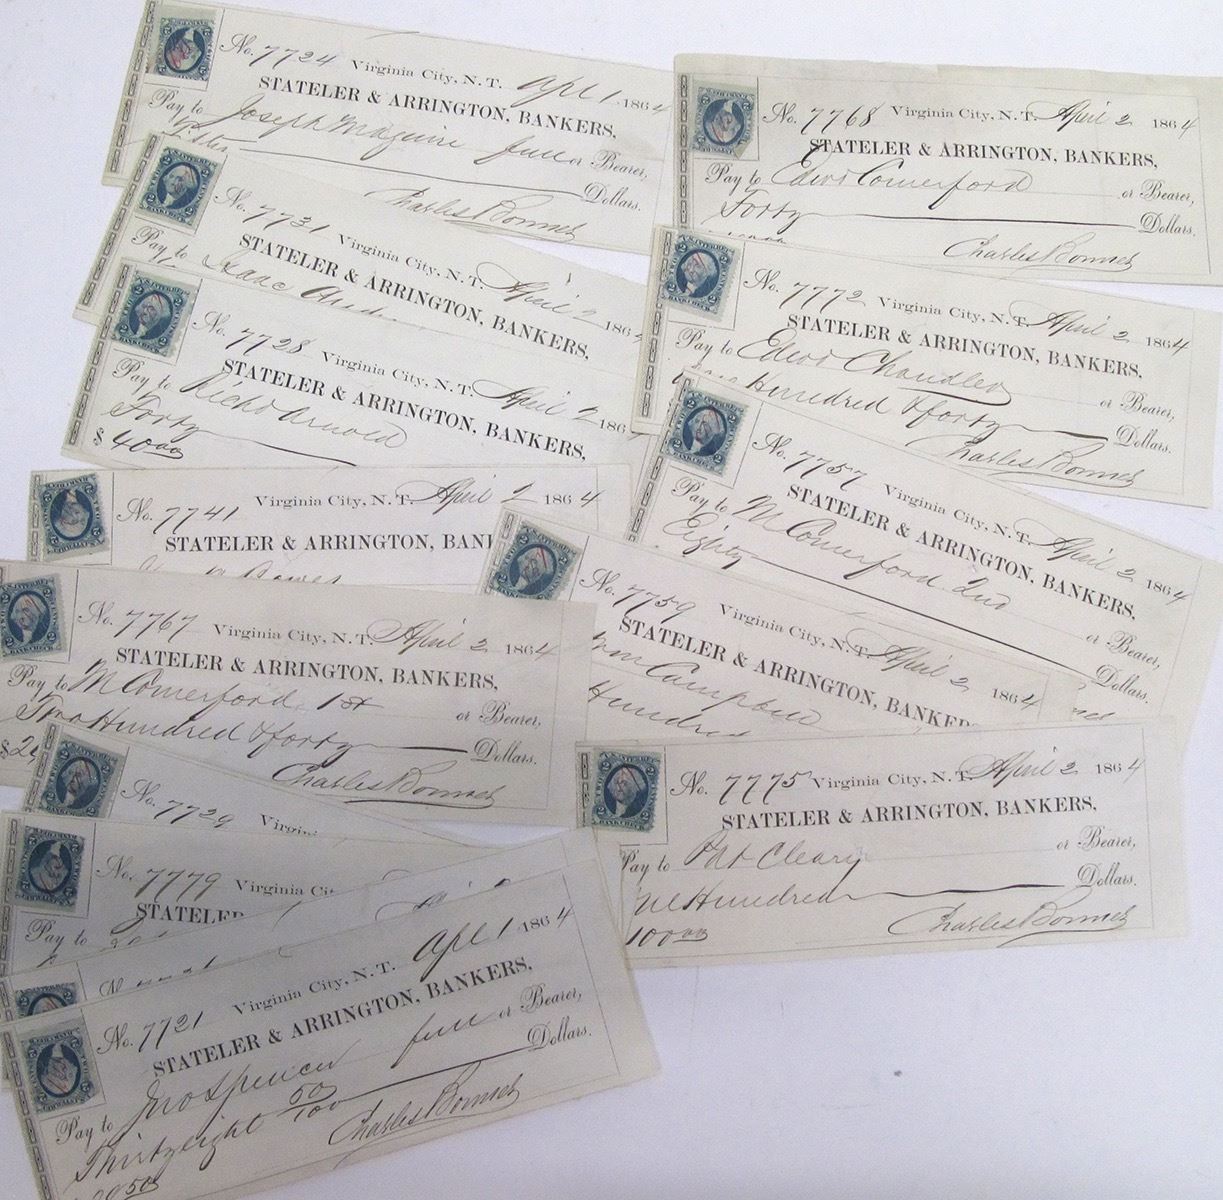 No. 7724 Virginia City, N. T. Apl 1 1864
STATELER & ARRINGTON, BANKERS,
Pay to Joseph Maguire full or Bearer,
Dollars.
Charles Bonnet
No. 7731 Virginia City, N. T. April 2 1864
STATELER & ARRINGTON, BANKERS,
Pay to Isaac
No. 7728 Virginia City, N. T. April 2 186
STATELER & ARRINGTON, BANKERS,
Pay to Richd Arnold
Forty
$ 40 00
No. 7741 Virginia City, N. T. April 2 1864
STATELER & ARRINGTON, BAN
No. 7767 Virginia City, N. T. April 2 1864
STATELER & ARRINGTON, BANKERS,
Pay to M Comerford 1st or Bearer,
Two Hundred & forty Dollars.
$ 2
Charles Bonnet
No. 7729 Virgini
No. 7779 Virginia Cit
STATELER
Pay to
No. 7721 Virginia City, N. T. Apl 1 1864
STATELER & ARRINGTON, BANKERS,
Pay to Jno Spencer full or Bearer,
Thirtyeight 50/100 Dollars.
Charles Bonnet
No. 7768 Virginia City, N. T. April 2 1864
STATELER & ARRINGTON, BANKERS,
Pay to Edwd Comerford or Bearer,
Forty Dollars.
Charles Bonnet
No. 7772 Virginia City, N. T. April 2 1864
STATELER & ARRINGTON, BANKERS,
Pay to Edwd Chandler or Bearer,
Hundred & forty Dollars.
Charles Bonnet
No. 7757 Virginia City, N. T. April 2 1864
STATELER & ARRINGTON, BANKERS,
Pay to M Comerford 2nd or Bearer,
Eighty Dollars.
No. 7759 Virginia City, N. T. April 2 1864
STATELER & ARRINGTON, BANKER
Wm Campbell
Hundred
No. 7775 Virginia City, N. T. April 2 1864
STATELER & ARRINGTON, BANKERS,
Pay to Pat Cleary or Bearer,
ne Hundred Dollars.
100 00
Charles Bonnet